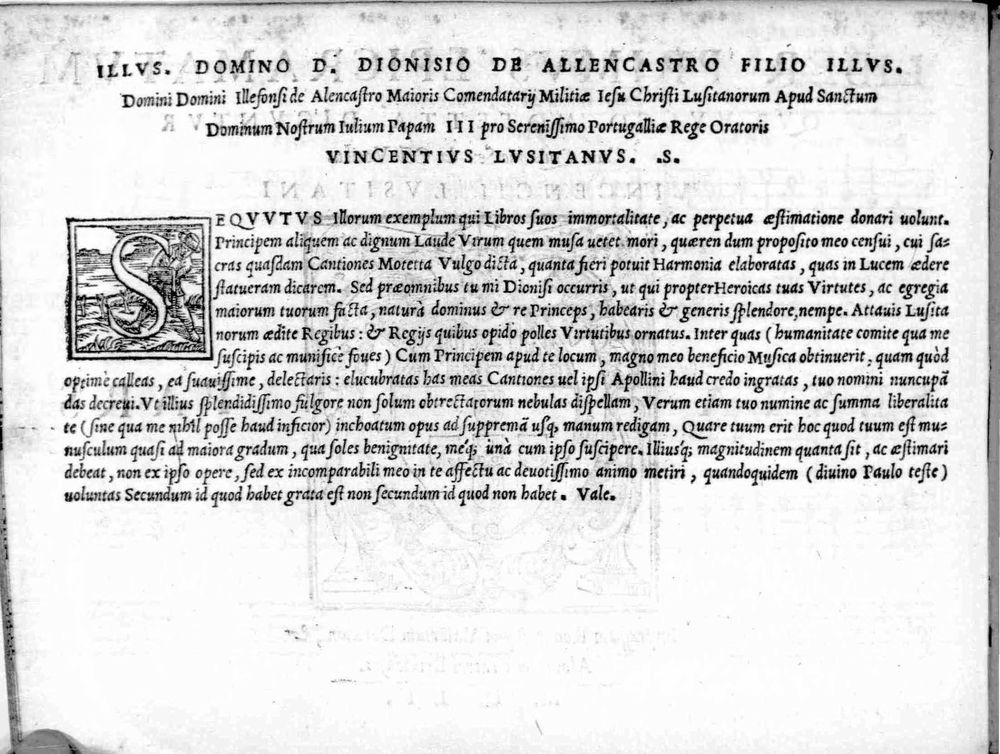 ILLVS. DOMINO D. DIONISIO DE ALLENCASTRO FILIO ILLVS.
Domini Domini Illefonsi de Alencastro Maioris Comendatarij Militiæ Iesu Christi Lusitanorum Apud Sanctum
Dominum Nostrum Iulium Papam III pro Serenissimo Portugalliæ Rege Oratoris
VINCENTIVS LVSITANVS. .S.
SEQVVTVS Illorum exemplum qui Libros suos immortalitate, ac perpetua æstimatione donari uolunt.
Principem aliquem ac dignum Laude Virum quem musa uetet mori, quæren dum proposito meo censui, cui sa-
cras quasdam Cantiones Motetta Vulgo dicta, quanta fieri potuit Harmonia elaboratas, quas in Lucem ædere
statueram dicarem. Sed præomnibus tu mi Dionisi occurris, ut qui propterHeroicas tuas Virtutes, ac egregia
maiorum tuorum facta, naturà dominus & re Princeps, habearis & generis splendore, nempe. Attauis Lusita
norum ædite Regibus: & Regijs quibus opido polles Virtutibus ornatus. Inter quas (humanitate comite qua me
suscipis ac munificè foues) Cum Principem apud te locum, magno meo beneficio Musica obtinuerit, quam quòd
optimè calleas, ea suauissime, delectaris: elucubratas has meas Cantiones uel ipsi Apollini haud credo ingratas, tuo nomini nuncupã
das decreui. Vt illius splendidissimo fulgore non solum obtrectatorum nebulas dispellam, Verum etiam tuo numine ac summa liberalita
te (sine qua me nihil posse haud inficior) inchoatum opus ad supremã usq; manum redigam, Quare tuum erit hoc quod tuum est mu-
nusculum quasi ad maiora gradum, qua soles benignitate, méq; unà cum ipso suscipere. Illiusq; magnitudinem quanta sit, ac æstimari
debeat, non ex ipso opere, sed ex incomparabili meo in te affectu ac deuotissimo animo metiri, quandoquidem (diuino Paulo teste)
uoluntas Secundum id quod habet grata est non secundum id quod non habet. Vale.